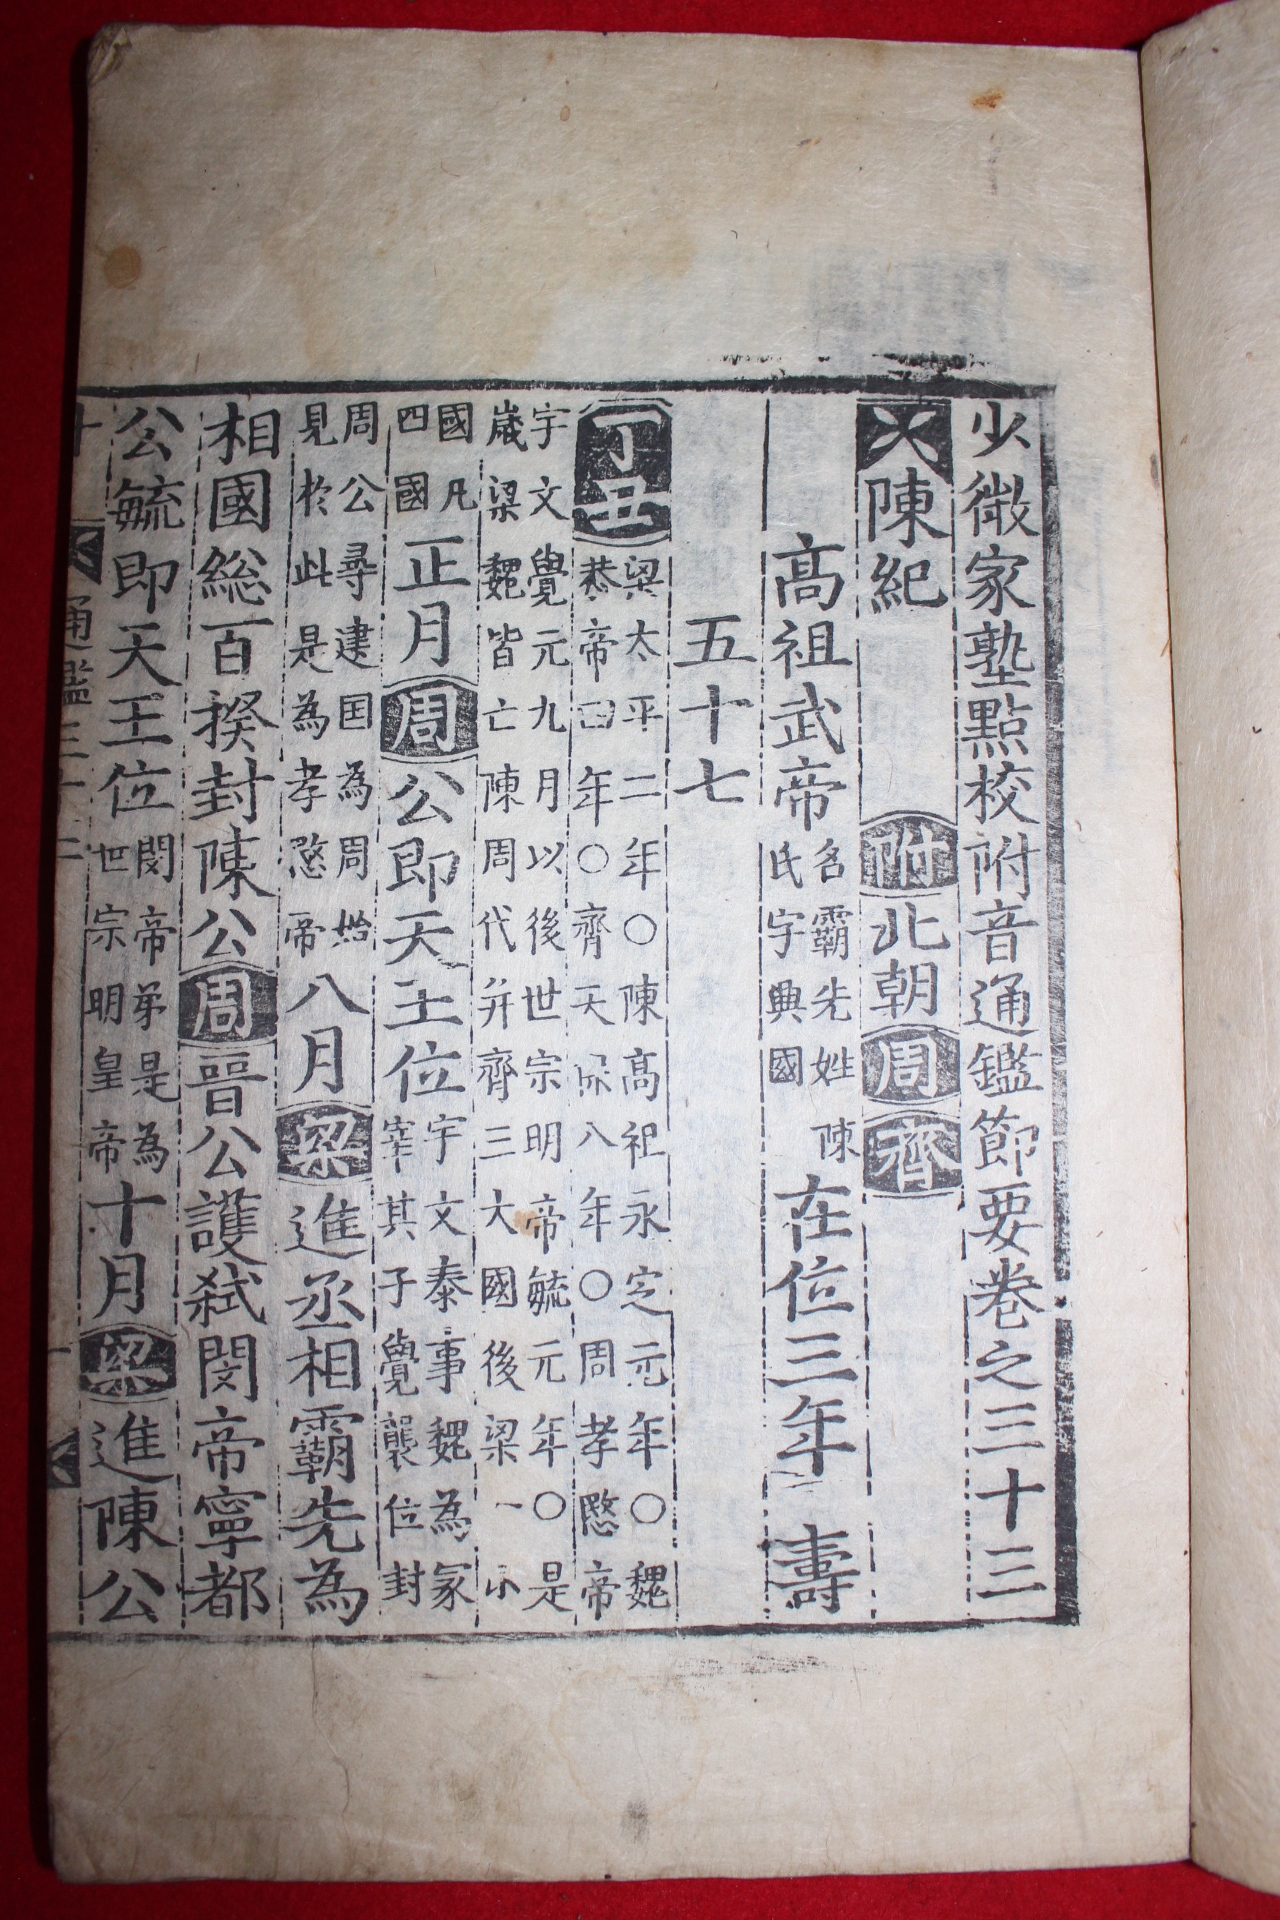 少微家塾點校附音通鑑節要卷之三十三
陳紀 附北朝周齊
高祖武帝名霸先姓陳氏字興國在位三年 壽
五十七
丁丑梁太平二年○陳高祖永定元年○魏恭帝四年○齊天保八年○周孝愍帝
宇文覺元九月以後世宗明帝毓元年○是歲梁魏皆亡陳周代并齊三大國後梁一小
國凡四國正月周公即天王位宇文泰事魏為冢宰其子覺襲位封
周公尋建国為周始見於此是為孝愍帝八月梁進丞相霸先為
相國総百揆封陳公周晉公護弑閔帝寧都
公毓即天王位閔帝弟是為世宗明皇帝十月梁進陳公
通鑑三十三